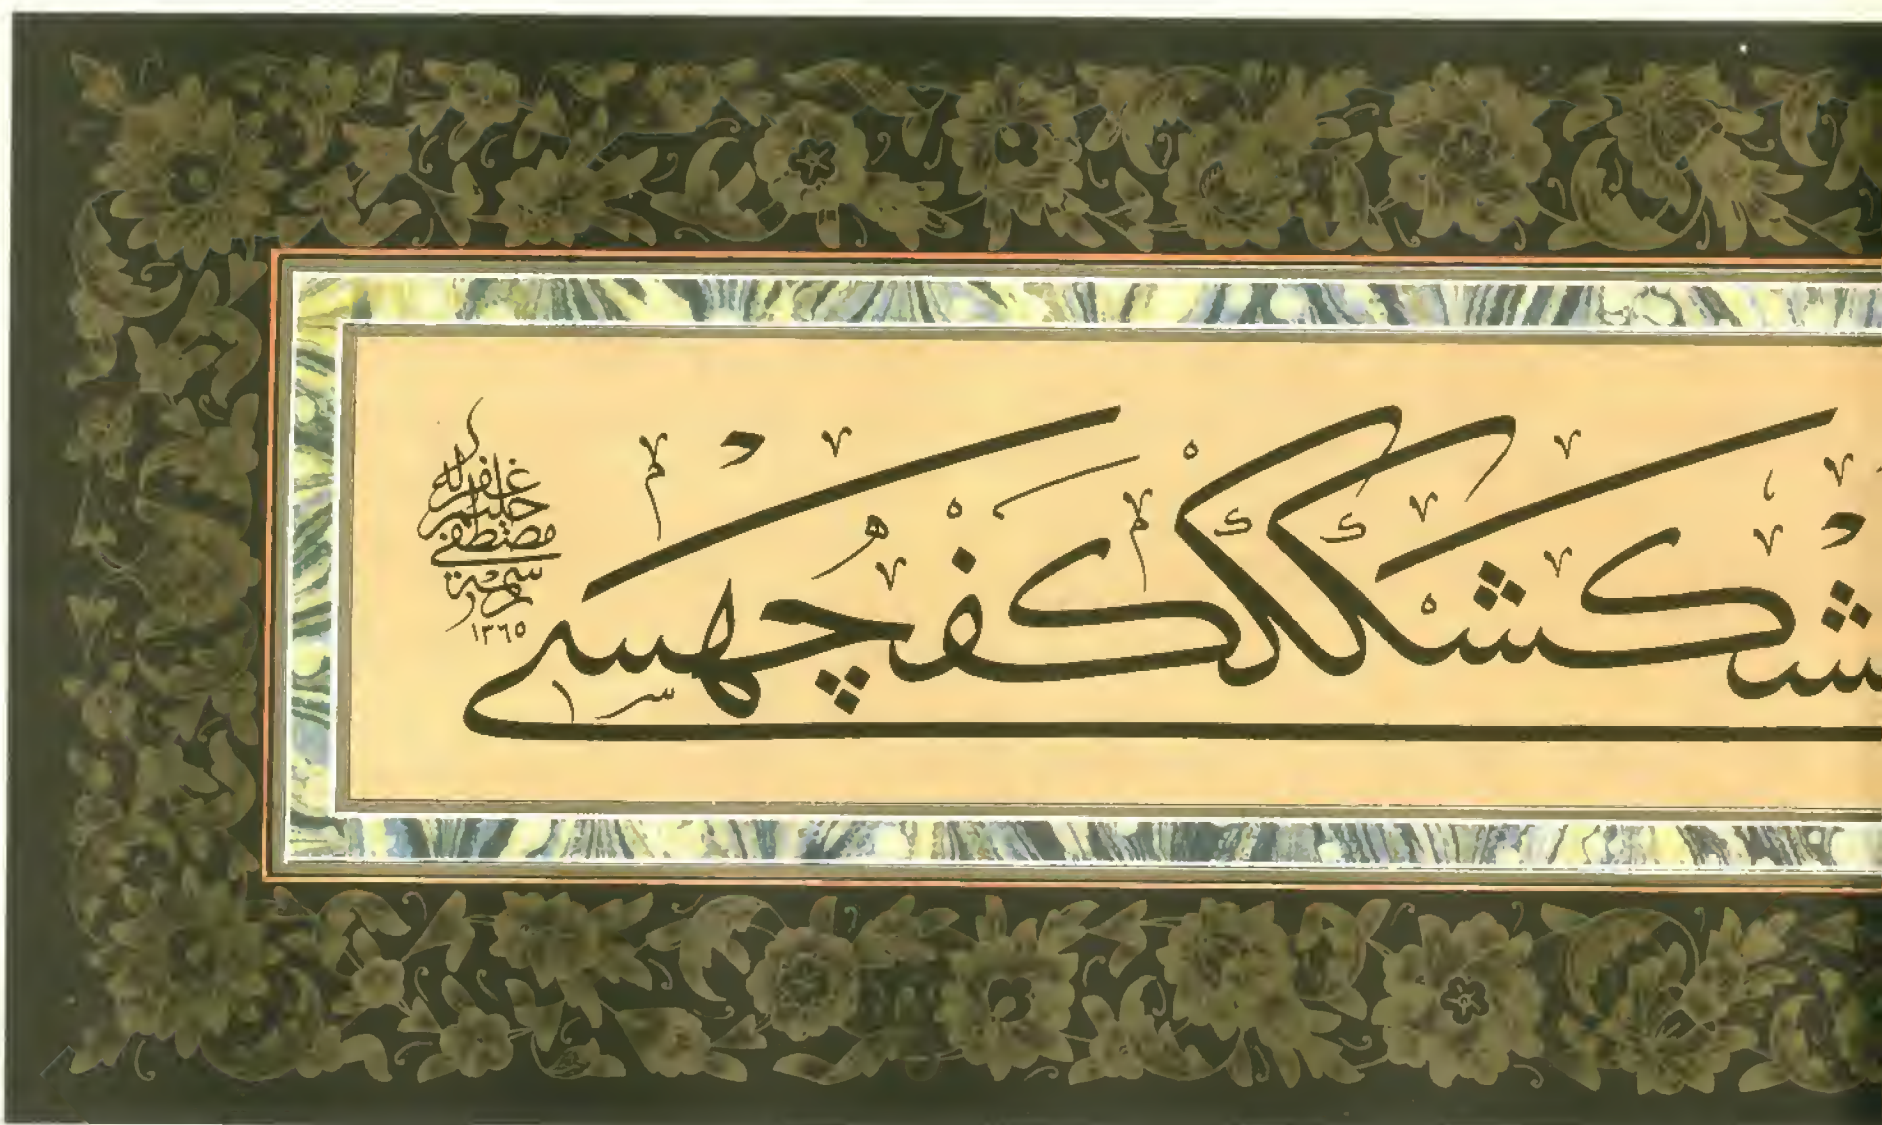 شكشكككفچهسى
مصطفى حليم غفر له
١٣٦٥